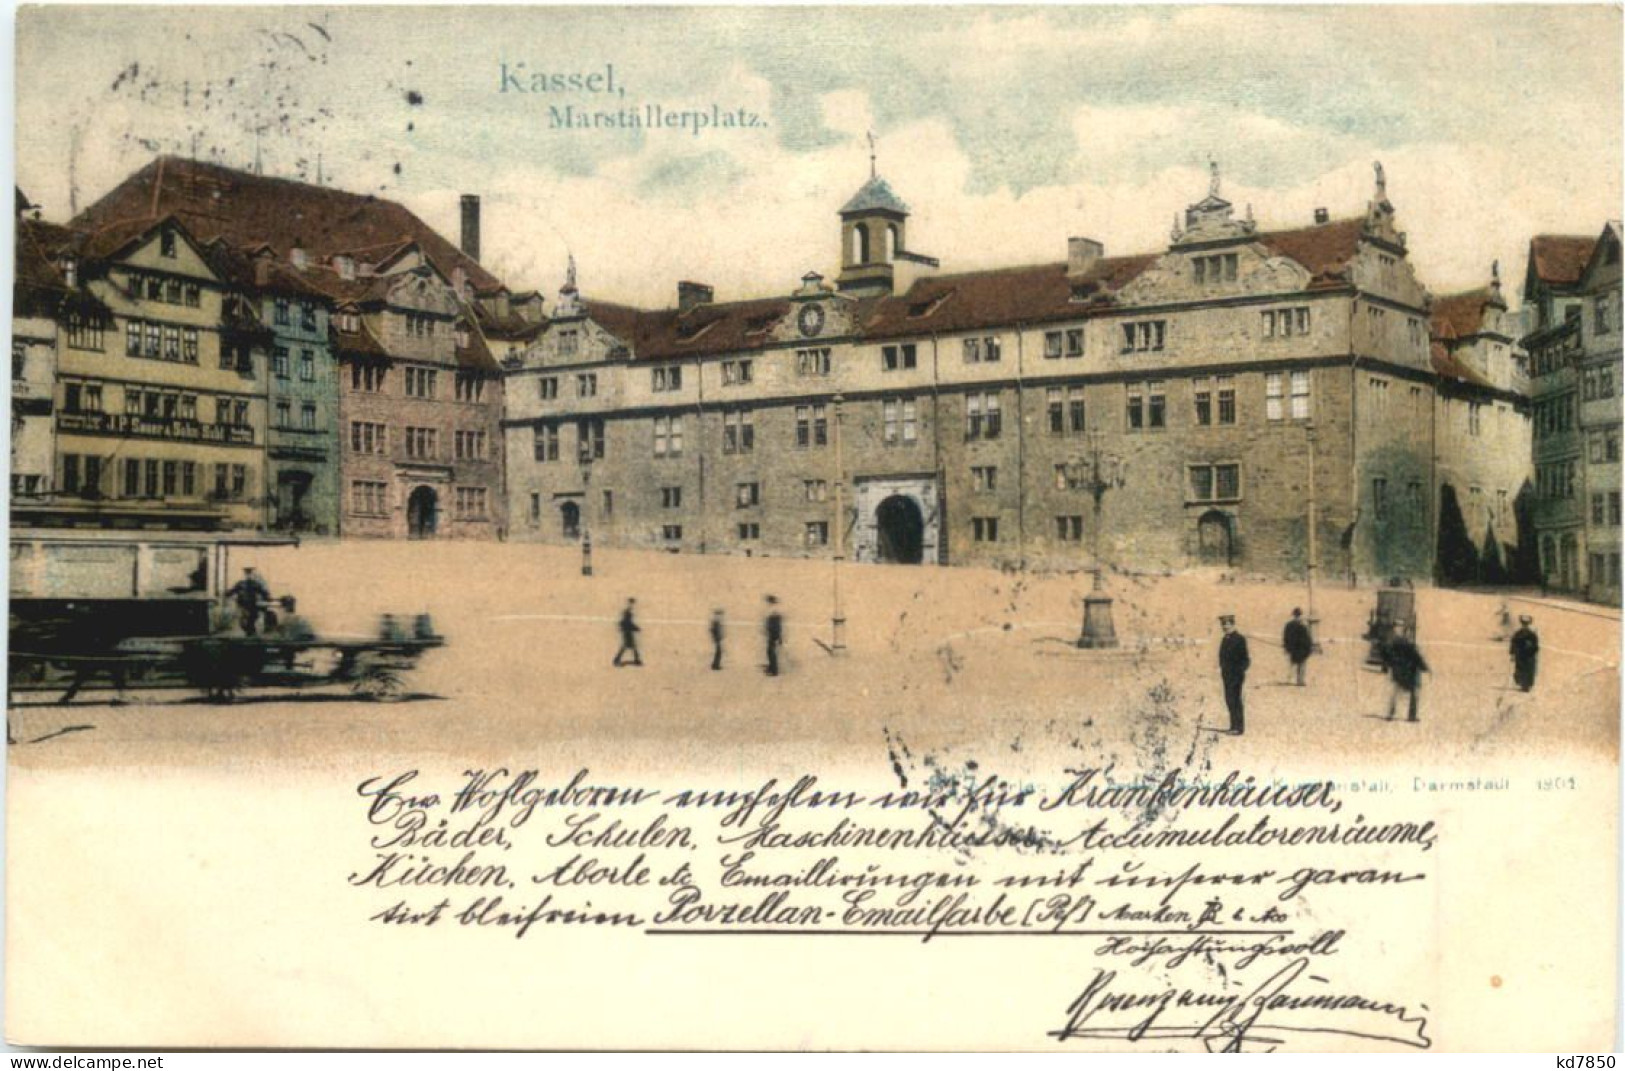 Kassel,
Marställerplatz.
J.P. Sauer & Sohn
Darmstadt 1901.
Ew. Wohlgeboren empfehlen wir für Krankenhäuser,
Bäder, Schulen, Maschinenhäuser, Accumulatorenräume,
Küchen, Aborte etc Emaillirungen mit unserer garan-
tirt bleifreien Porzellan-Emailfarbe (Pef) Marken
Hochachtungsvoll
Rosenzweig & Baumann
kd7850